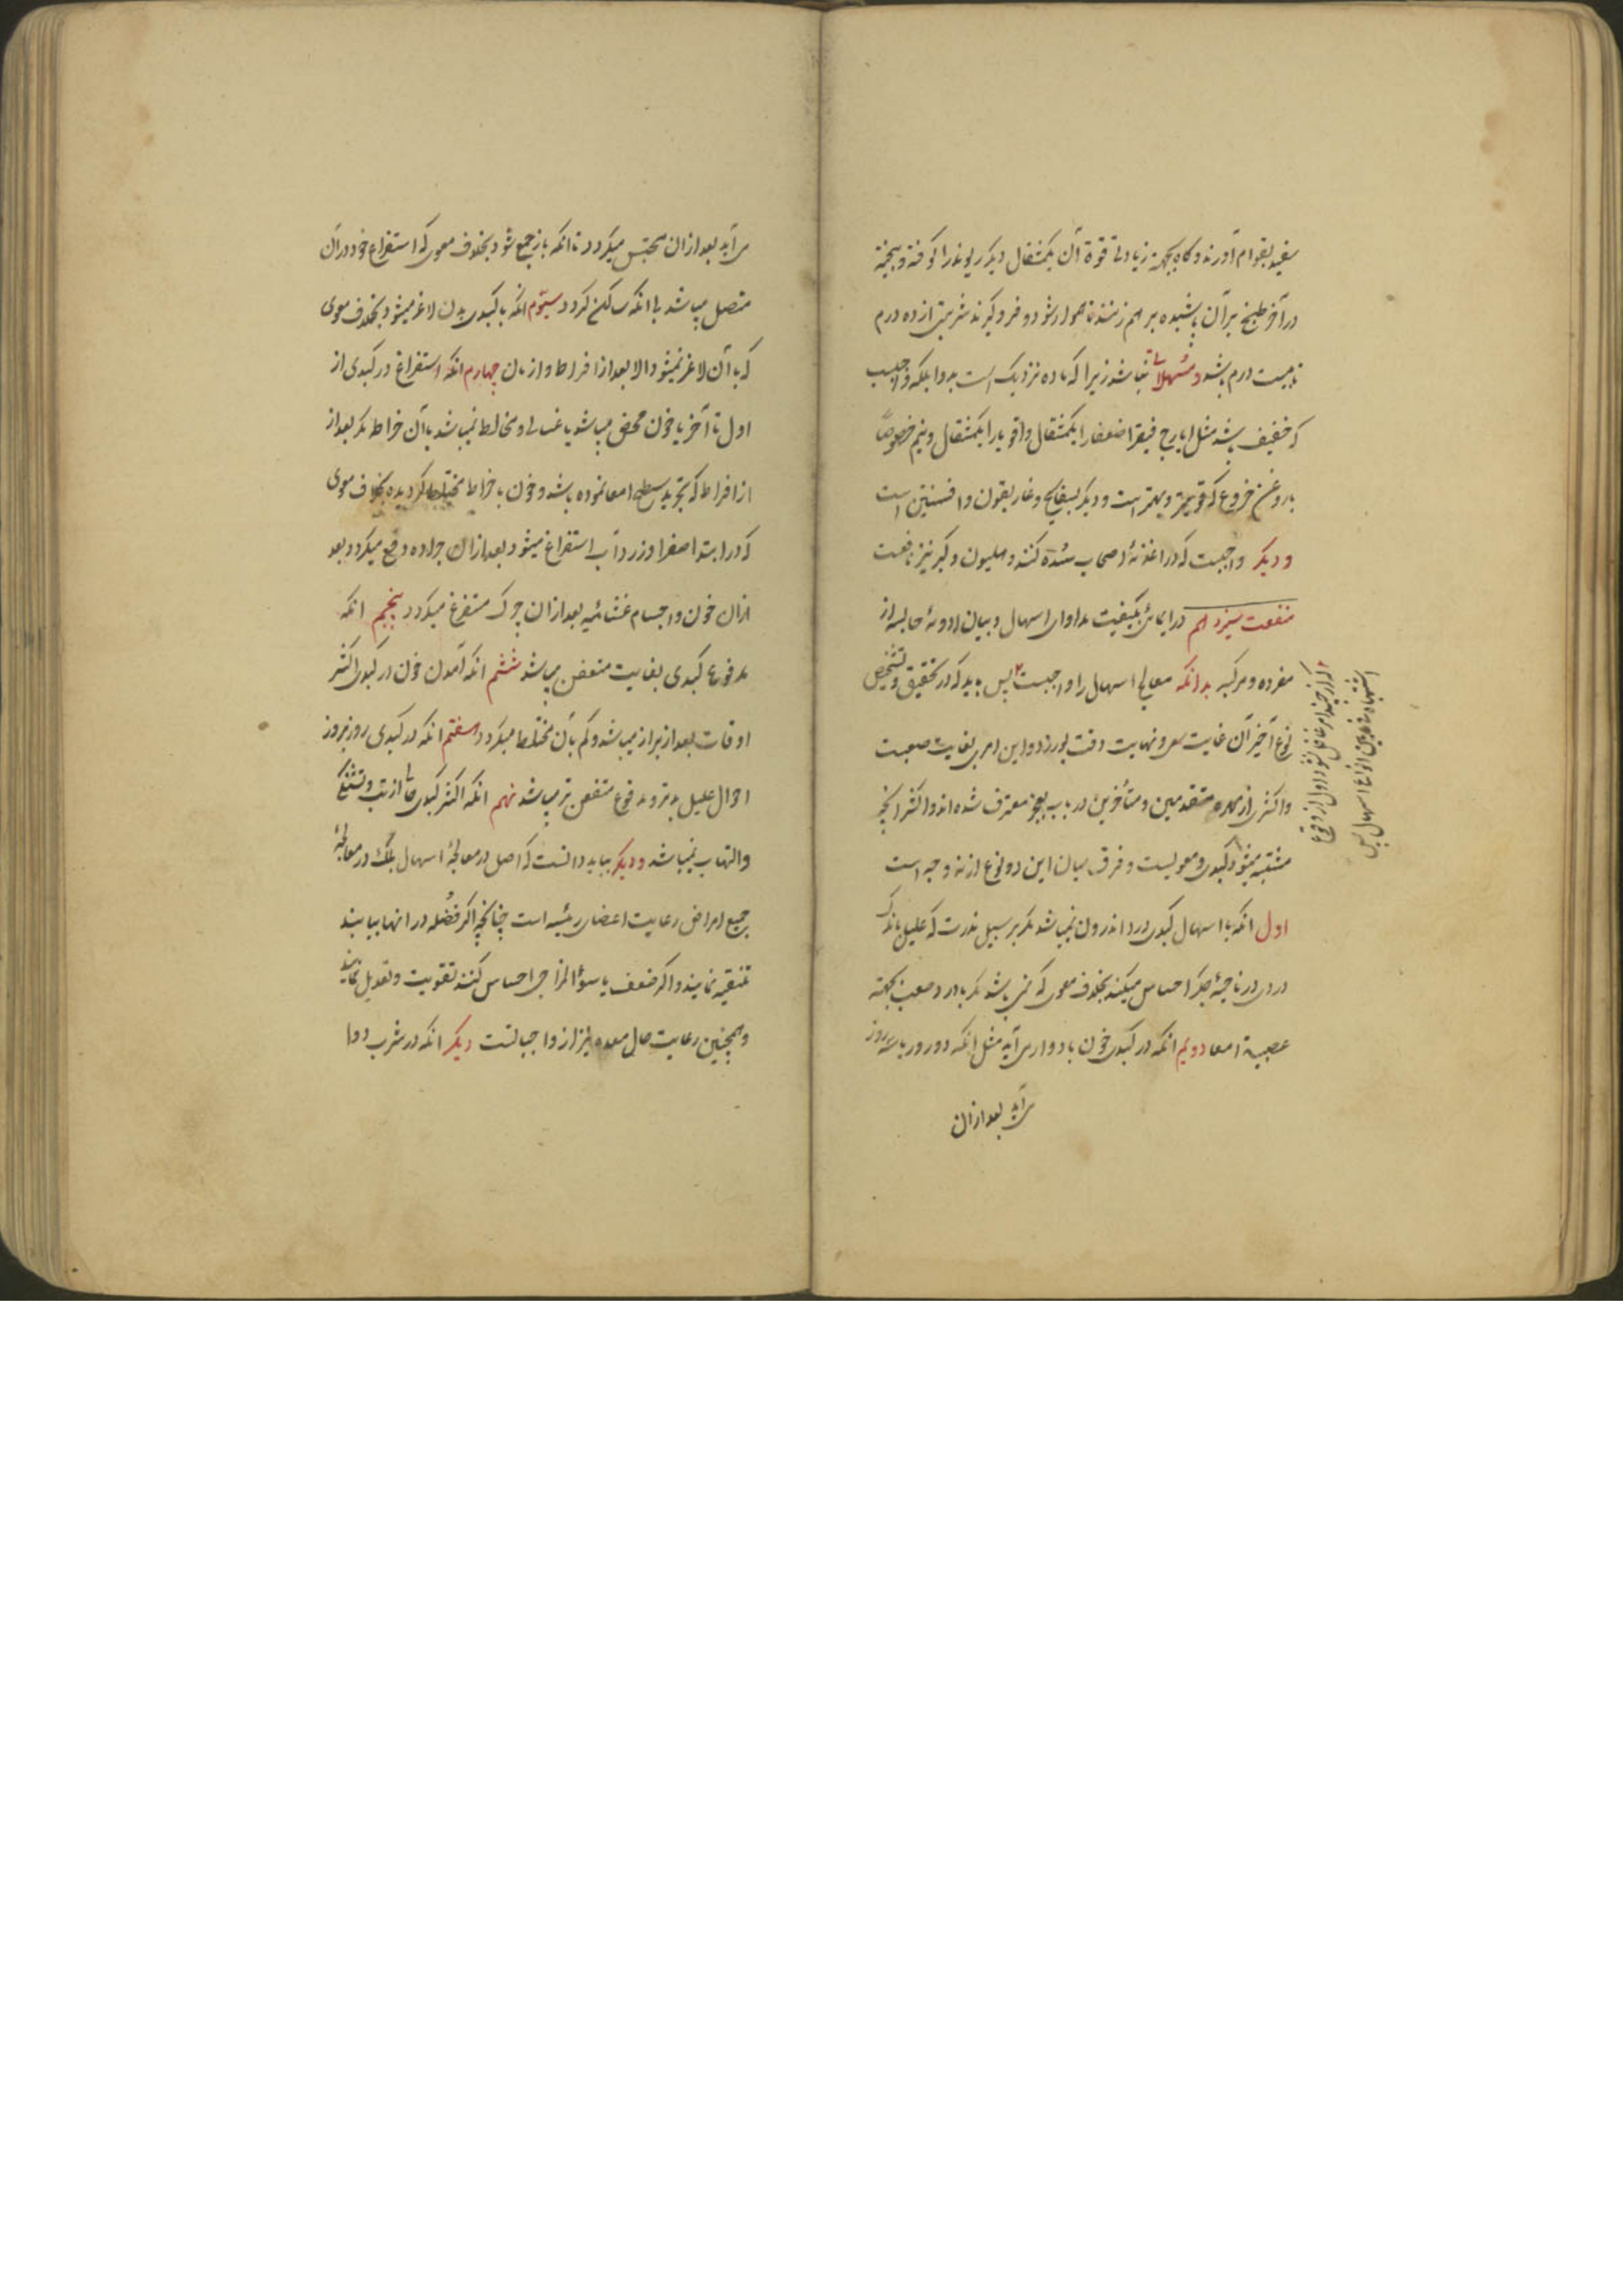 سفید بقوام آورند و کاه بجهة زیادتی قوة آن یکمثقال دیکر ریوند را کوفته و بیخته
در آخر طبخ بر آن پاشیده بر هم زنند تا هموار شود و فرو کیرند شربتی از ده درم
تا بیست درم باشد و مسهلات نباشد زیرا که ماده نزدیک است بدوا بلکه واجبست
که خفیف باشد مثل ایارج فیقرا ضعفا را یکمثقال و اقویا را یکمثقال و نیم خصوصاً
با روغن خروع که قویتر و بهتر است و دیکر بسفایج و غاریقون و افسنتین است
و دیکر واجبست که در اغذیهٔ اصحاب سدّه کنند و هلیون و کبر نیز نافعست
منفعت سیزدهم در ایمائی بکیفیت مداوای اسهال و بیان ادویهٔ حابسه از
مفرده و مرکبه بدانکه معالج اسهال را واجبست پس باید که در تحقیق و تشخیص
نوع آخر آن غایت سعی و نهایت دقت بورزد و این امری بغایت صعبست
و اکثری از مهرهٔ متقدمین و متأخرین در باب بعجز معترف شده اند و اکثر آنچه
مشتبه میشود کبدی و معویست و فرق میان این دو نوع از نه وجه است
اول انکه با اسهال کبدی درد اندرون نمیباشد مکر بر سبیل ندرت که علیل اندک
دردی در ناحیهٔ جکر احساس میکند بخلاف معوی که نمی باشد مکر با درد صعب بجهته
عصبیة امعا دویم انکه در کبدی خون بادوار می آید مثل انکه دو روز یا سه روز
می آید بعد از ان
می آید بعد از ان محتبس میکردد تا انکه باز جمع شود بخلاف معوی که استفراغ خود در آن
متصل میباشد یا انکه ساکن کردد سیّوم انکه با کبدی بدن لاغر میشود بخلاف معوی
که با آن لاغر نمیشود الا بعد از افراط و ازمان چهارم انکه استفراغ در کبدی از
اول تا آخر یا خون محض میباشد یا غسالی و مخالط نمیباشد با آن خراطه مکر بعد از
از افراط که تجرید سطح امعا نموده باشد و خون با خراطه مختلط کردیده بخلاف معوی
که در ابتدا صفرا و زرداب استفراغ میشود بعد از ان جراده دفع میکردد بعد
از ان خون و اجسام غشائیه بعد از ان چرک مستفرغ میکردد پنجم انکه
مدفوع کبدی بغایت متعفن میباشد ششم انکه آمدن خون در کبدی اکثر
اوقات بعد از براز میباشد و کم بآن مختلط میکردد هفتم انکه در کبدی روز بروز
احوال علیل بدتر و مدفوع متعفن تر میباشد نهم انکه اکثر کبدی خالی از تب و تشنکی
و التهاب نمیباشد و دیکر بباید دانست که اصل در معالجهٔ اسهال بلکه در معالجهٔ
جمیع امراض رعایت اعضای رئیسه است چنانچه اکر فضله در انها بیابند
تنقیه نمایند و اکر ضعف یا سوء المزاجی احساس کنند تقویت و تعدیل نمایند
و همچنین رعایت حال معده نیز از واجباتست دیکر انکه در شرب دوا